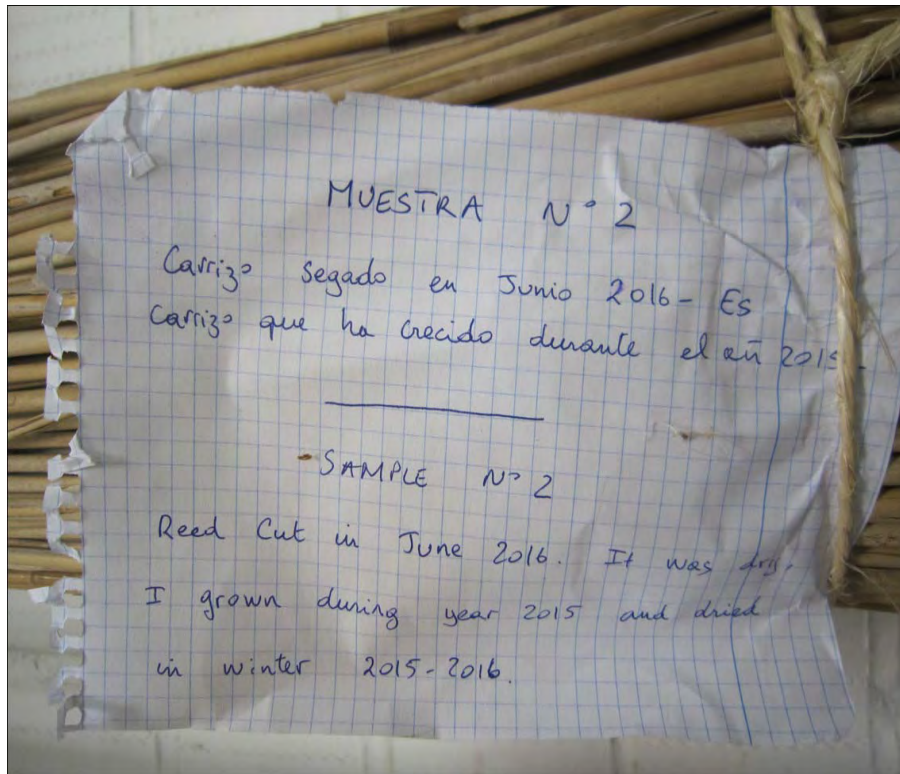 MUESTRA N° 2
Carrizo segado en Junio 2016- Es
Carrizo que ha crecido durante el añ 2015-
SAMPLE N° 2
Reed Cut in June 2016. It was dry.
I grown during year 2015 and dried
in winter 2015-2016.